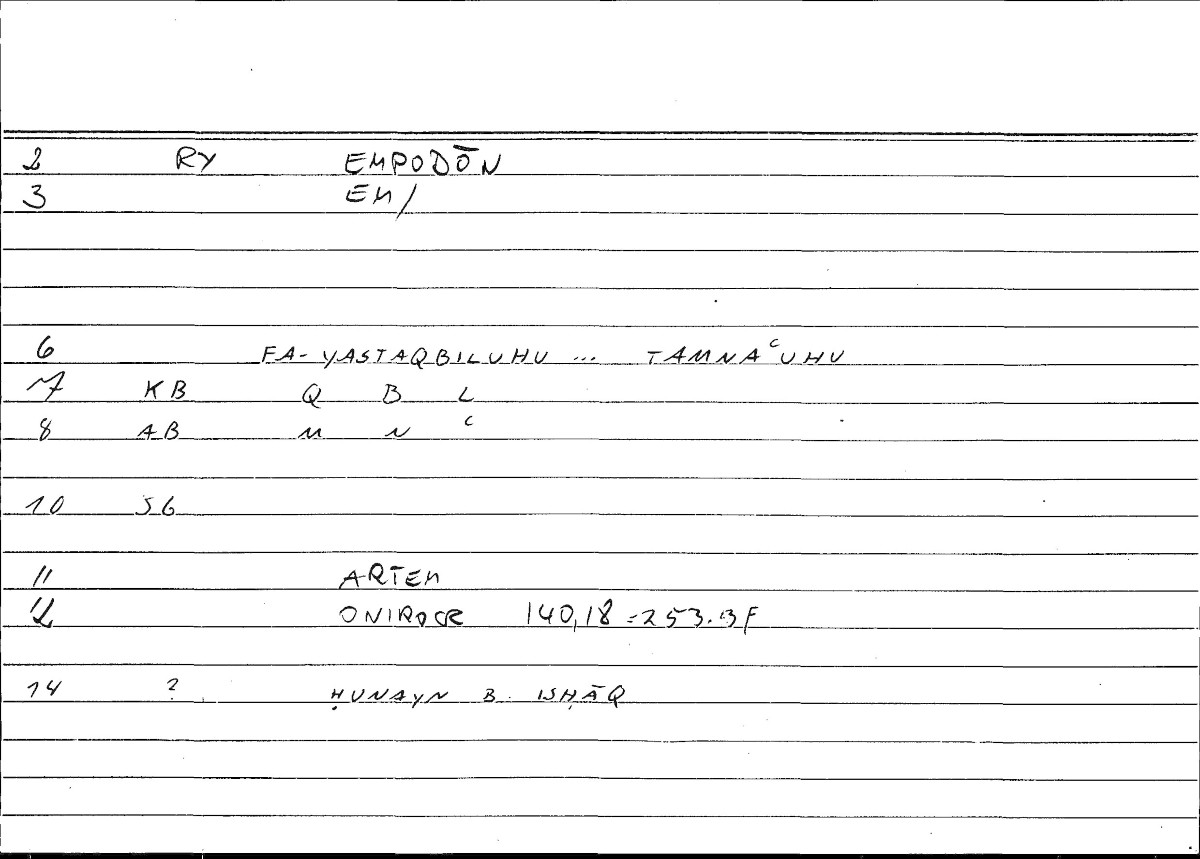 2 RY EMPODŌN
3 EM/
6 FA-YASTAQBILUHU ... TAMNAʿUHU
7 KB Q B L
8 AB M N ʿ
10 56
11 ARTEM
12 ONIROCR 140,18=253.3F
14 ? ḤUNAYN B. ISḤĀQ